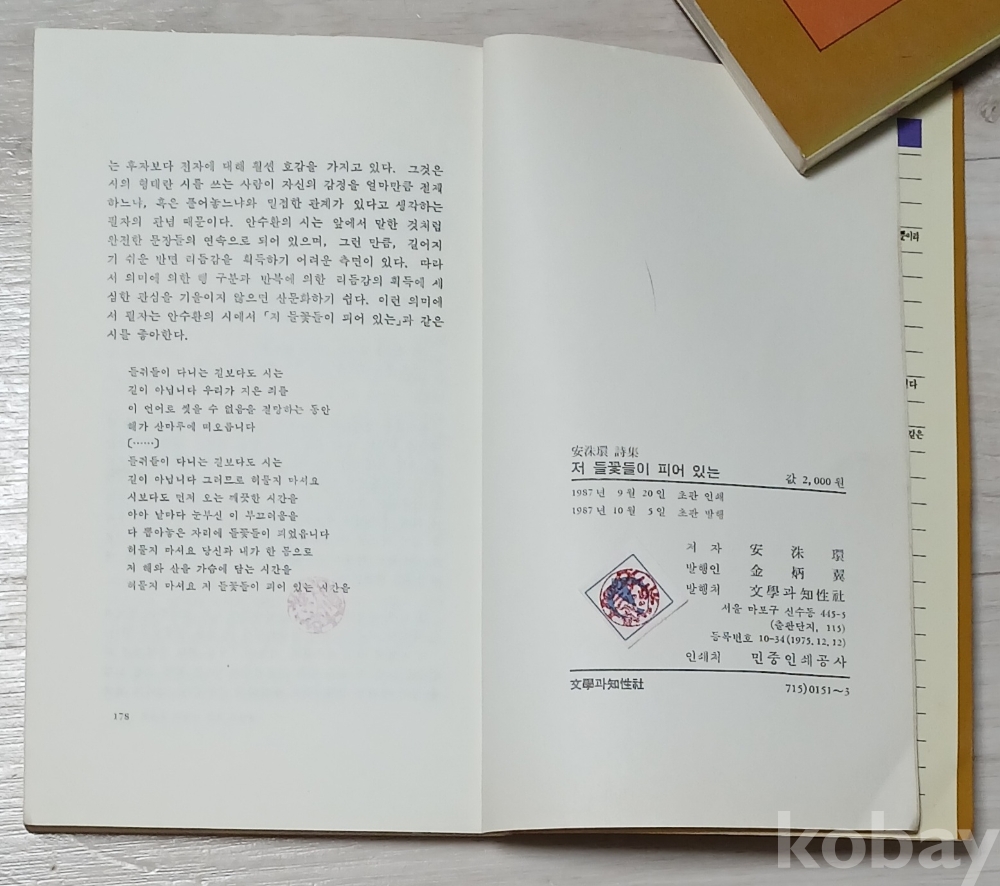 는 후자보다 전자에 대해 훨씬 호감을 가지고 있다. 그것은
시의 형태란 시를 쓰는 사람이 자신의 감정을 얼마만큼 절제
하느냐, 혹은 풀어놓느냐와 밀접한 관계가 있다고 생각하는
필자의 관념 때문이다. 안수환의 시는 앞에서 말한 것처럼
완전한 문장들의 연속으로 되어 있으며, 그런 만큼, 길어지
기 쉬운 반면 리듬감을 획득하기 어려운 측면이 있다. 따라
서 의미에 의한 행 구분과 반복에 의한 리듬감의 획득에 세
심한 관심을 기울이지 않으면 산문화하기 쉽다. 이런 의미에
서 필자는 안수환의 시에서 「저 들꽃들이 피어 있는」과 같은
시를 좋아한다.
들쥐들이 다니는 길보다도 시는
길이 아닙니다 우리가 지은 죄를
이 언어로 씻을 수 없음을 절망하는 동안
해가 산마루에 떠오릅니다
(……)
들쥐들이 다니는 길보다도 시는
길이 아닙니다 그러므로 허물지 마셔요
시보다도 먼저 오는 깨끗한 시간을
아아 날마다 눈부신 이 부끄러움을
다 뽑아놓은 자리에 들꽃들이 피었읍니다
허물지 마셔요 당신과 내가 한 몸으로
저 해와 산을 가슴에 담는 시간을
허물지 마셔요 저 들꽃들이 피어 있는 시간을
178
安洙環 詩集
저 들꽃들이 피어 있는
값 2,000원
1987년 9월 20일 초판 인쇄
1987년 10월 5일 초판 발행
저 자 安 洙 環
발행인 金 炳 翼
발행처 文學과知性社
서울 마포구 신수동 445-5
(출판단지, 115)
등록번호 10-34(1975.12.12)
인쇄처 민중인쇄공사
文學과知性社
715)0151～3
kobay